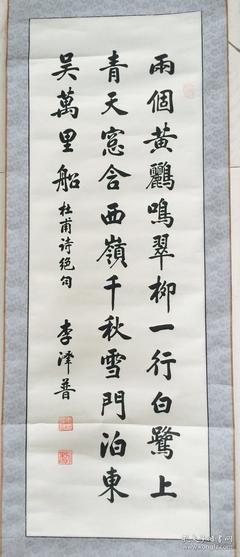 兩個黃鸝鳴翠柳一行白鷺上
青天窓含西嶺千秋雪門泊東
吳萬里船 杜甫诗绝句 李泽普